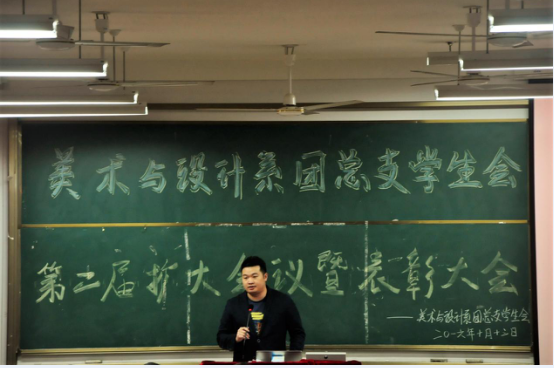 美术与设计系团总支学生会
第二届扩大会议暨表彰大会
——美术与设计系团总支学生会
二〇一六年十月十二日